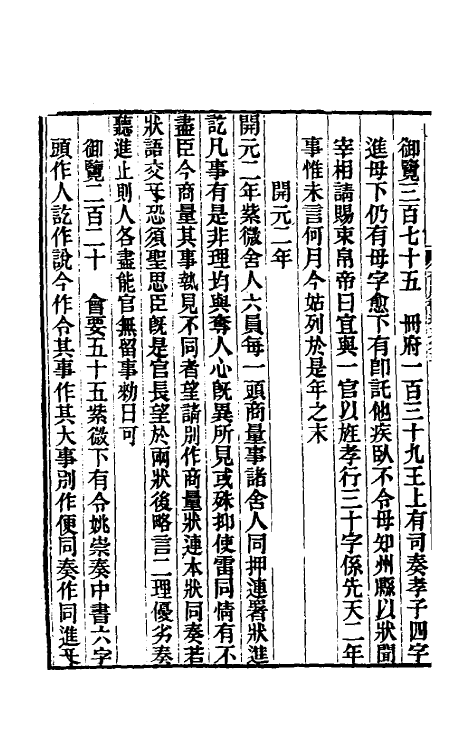 御覽三百七十五　冊府一百三十九王上有司奏孝子四字
進母下仍有母字愈下有卽託他疾臥不令母知州縣以狀聞
宰相請賜束帛帝曰宜與一官以旌孝行三十字係先天二年
事惟未言何月今姑列於是年之末
開元二年
開元二年紫微舍人六員每一頭商量事諸舍人同押連署狀進
訖凡事有是非理均與奪人心旣異所見或殊抑使雷同情有不
盡臣今商量其事執見不同者望請別作商量狀連本狀同奏若
狀語交互恐須聖思臣旣是官長望於兩狀後略言二理優劣奏
聽進止則人各盡能官無留事勑曰可
御覽二百二十　會要五十五紫微下有令姚崇奏中書六字
頭作人訖作說今作令其事作其大事別作便同奏作同進互